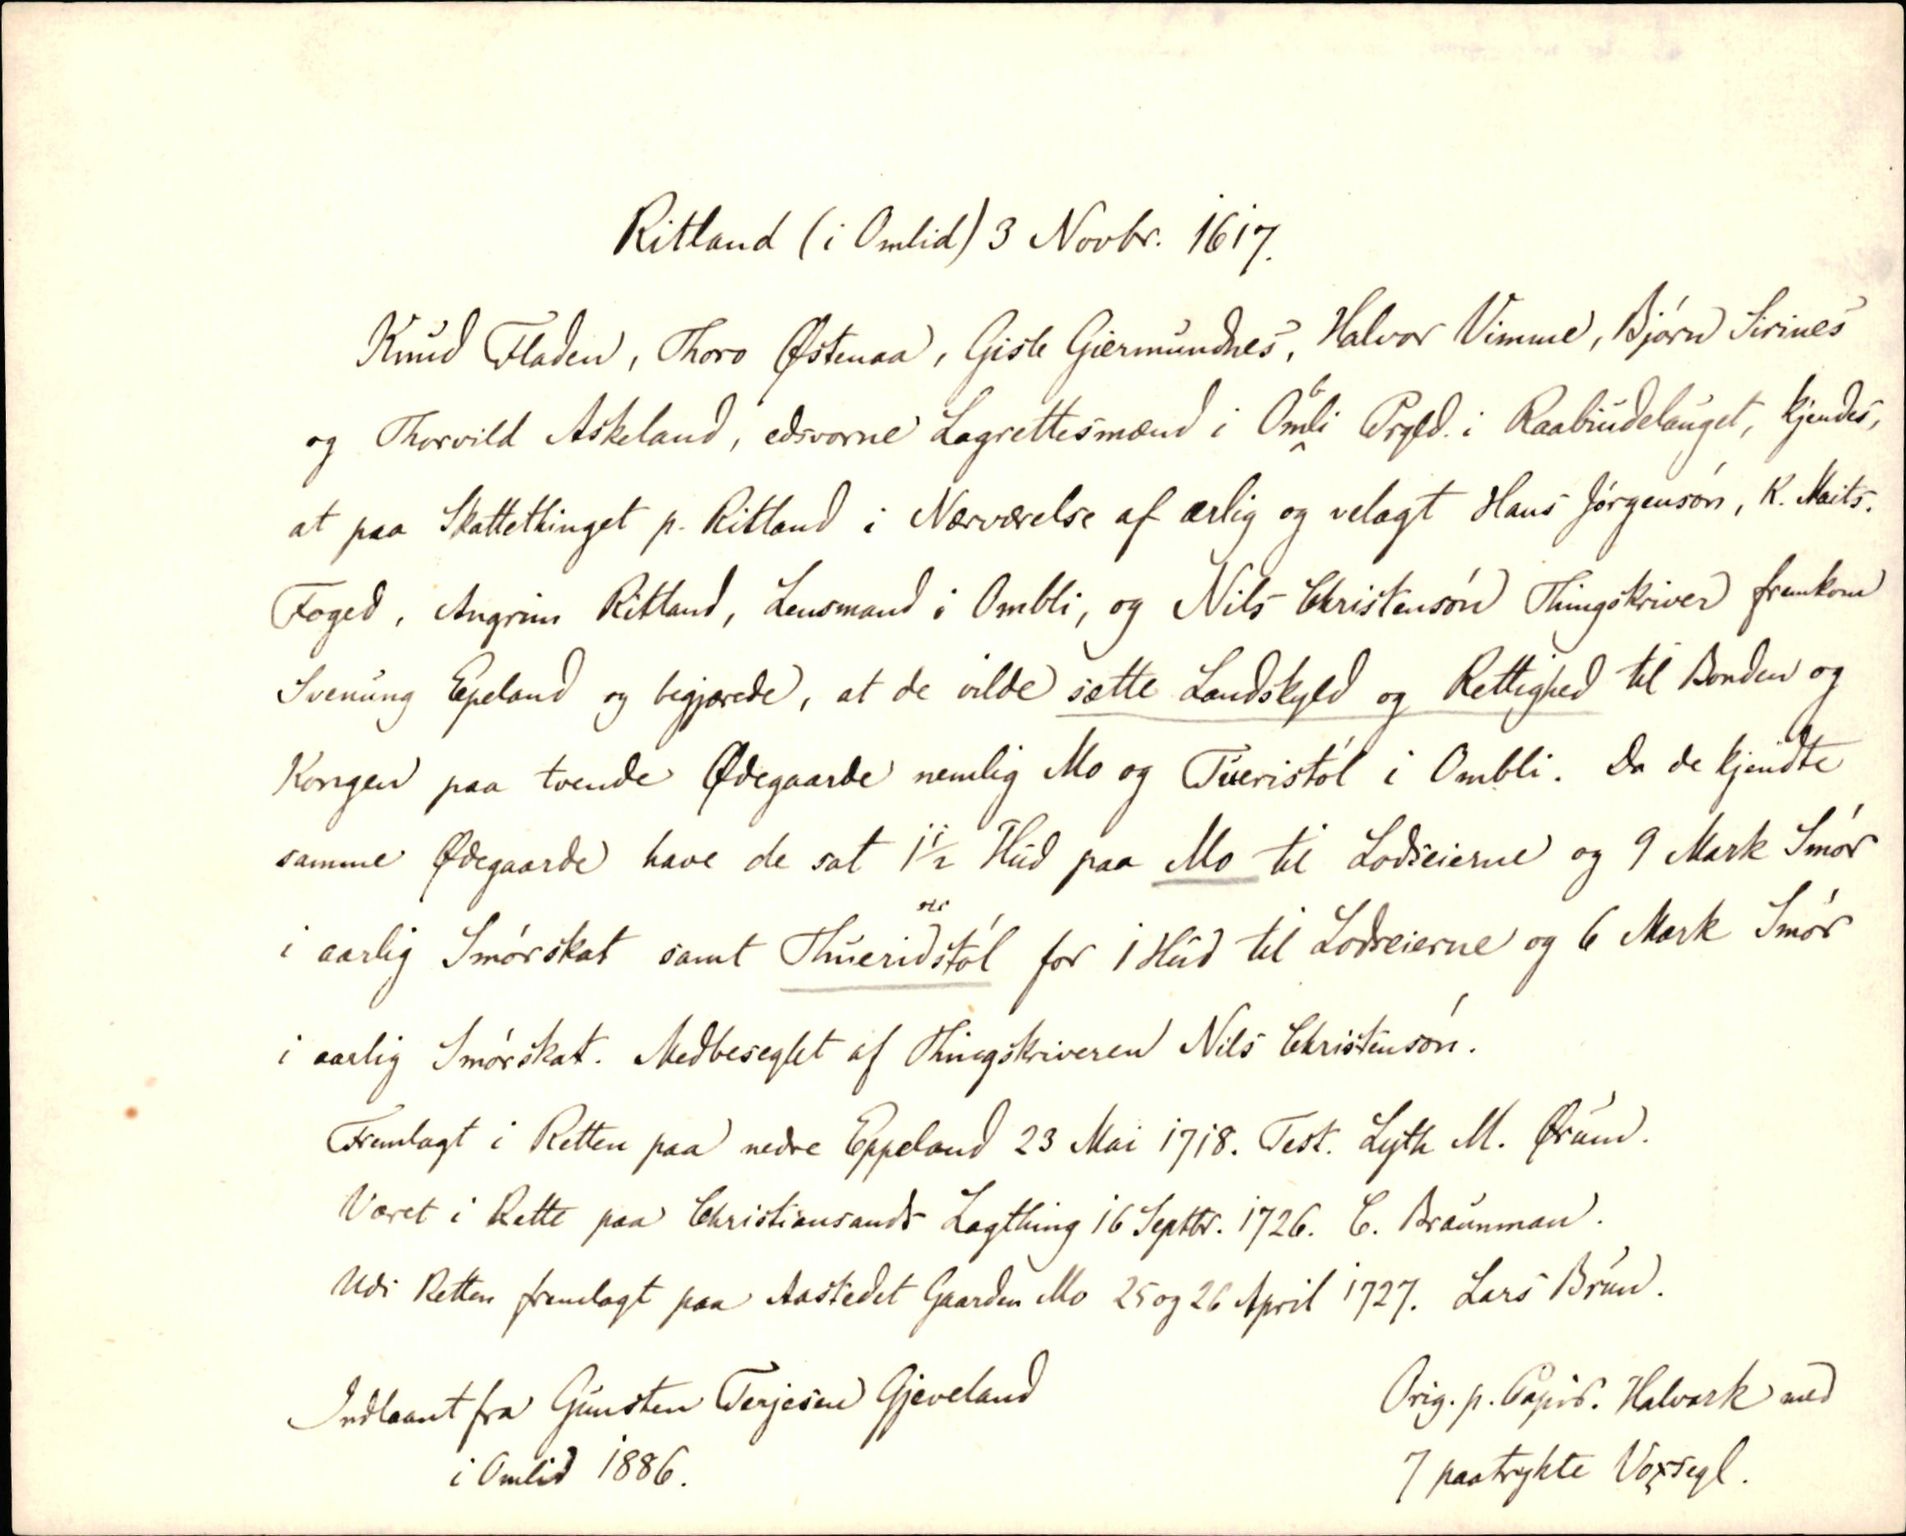 Ritland (i Omlid) 3 Novbr. 1617.
Knud Fladen, Thoro Østenaa, Gisle Giermundnes, Halvor Vimme, Bjørn Sirines
og Thorvild Askeland, edsvorne Lagrettesmænd i Ombli Prgld. i Raabiudelauget, kjendes,
at paa Skattethinget p. Ritland i Nærværelse af ærlig og velagt Hans Jørgensøn, K. Maits.
Foged, Angrim Ritland, Lensmand i Ombli, og Nils Christensøn Thingskriver fremkom
Svenung Epeland og begjærede, at de vilde sætte Landskyld og Rettighed til Bonden og
Kongen paa tvende Ødegaarde nemlig Mo og Tueristøl i Ombli. Da de kjendte
samme Ødegaarde have de sat 1 1/2 Hud paa Mo til Lodseierne og 9 Mark Smør
i aarlig Smørskat samt Thueridstøl for 1 Hud til Lodseierne og 6 Mark Smør
i aarlig Smørskat. Medbeseglet af Thingskriveren Nils Christensøn.
Fremlagt i Retten paa nedre Eppeland 23 Mai 1718. Test. Lyth M. Ørum.
Været i Rette paa Christiansands Lagthing 16 Septbr. 1726. C. Braunman.
Udi Retten fremlagt paa Aastedet Gaarden Mo 25 og 26 April 1727. Lars Brun.
Indlaant fra Gunsten Terjesen Gjeveland
i Omlid 1886.
Orig. p. Papir. Halvark med
7 paatrykte Voxsegl.